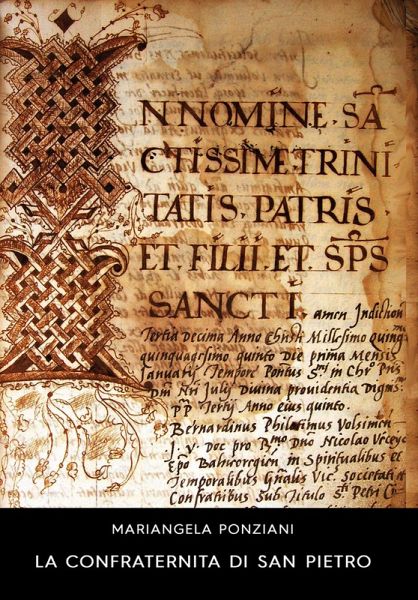 IN NOMINE. SA
CTISSIME TRINI
TATIS. PATRIS
ET. FILII. ET. SPS
SANCTI. amen Indichon
Tertia Decima Anno Christi Millesimo quinq
quinquagesimo quinto Die prima Mensis
Januarij Tempore Pontus Smi in Chro Pris
Dm Nri Julij Divina providentia
PP Tertij Anno eius quinto.
Bernardinus Philotimus Volsimen
J. v. Doc pro Rmo Dno Nicolao
Epo Balneoregien in Spiritualibus et
Temporalibus Gnalis Vic. Societati et
Confratibus Sub Titulo Sti Petri
MARIANGELA PONZIANI
LA CONFRATERNITA DI SAN PIETRO